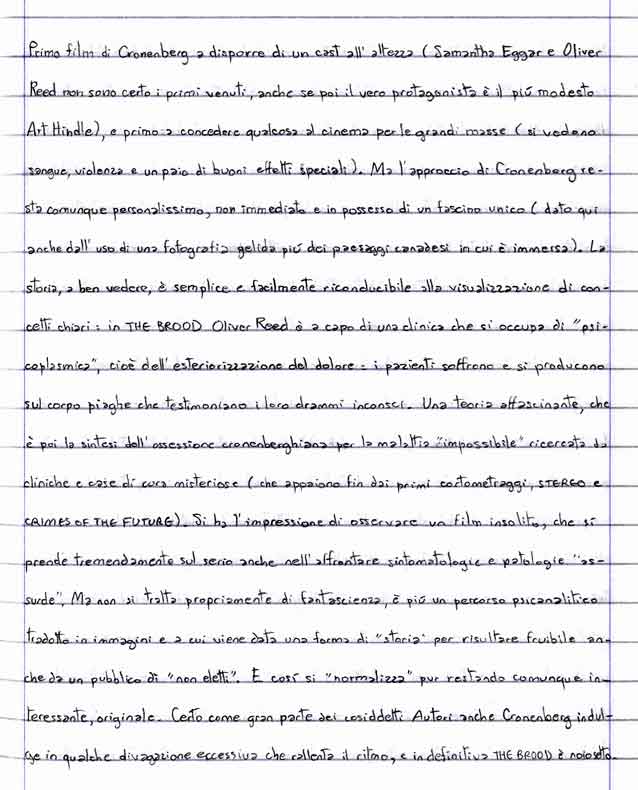 Primo film di Cronenberg a disporre di un cast all'altezza (Samantha Eggar e Oliver
Reed non sono certo i primi venuti, anche se poi il vero protagonista è il più modesto
Art Hindle), e primo a concedere qualcosa al cinema per le grandi masse (si vedono
sangue, violenza e un paio di buoni effetti speciali). Ma l'approccio di Cronenberg re-
sta comunque personalissimo, non immediato e in possesso di un fascino unico (dato qui
anche dall'uso di una fotografia gelida più dei paesaggi canadesi in cui è immersa). La
storia, a ben vedere, è semplice e facilmente riconducibile alla visualizzazione di con-
cetti chiari: in THE BROOD Oliver Reed è a capo di una clinica che si occupa di "psi-
coplasmica", cioè dell'esteriorizzazione del dolore: i pazienti soffrono e si producono
sul corpo piaghe che testimoniano i loro drammi inconsci. Una teoria affascinante, che
è poi la sintesi dell'ossessione cronenberghiana per la malattia "impossibile" ricercata da
cliniche e case di cura misteriose (che appaiono fin dai primi cortometraggi, STEREO e
CRIMES OF THE FUTURE). Si ha l'impressione di osservare un film insolito, che si
prende tremendamente sul serio anche nell'affrontare sintomatologie e patologie "as-
surde". Ma non si tratta propriamente di fantascienza, è più un percorso psicanalitico
tradotto in immagini e a cui viene data una forma di "storia" per risultare fruibile an-
che da un pubblico di "non eletti". E così si "normalizza" pur restando comunque in-
teressante, originale. Certo come gran parte dei cosiddetti Autori anche Cronenberg indul-
ge in qualche divagazione eccessiva che rallenta il ritmo, e in definitiva THE BROOD è noiosetto.